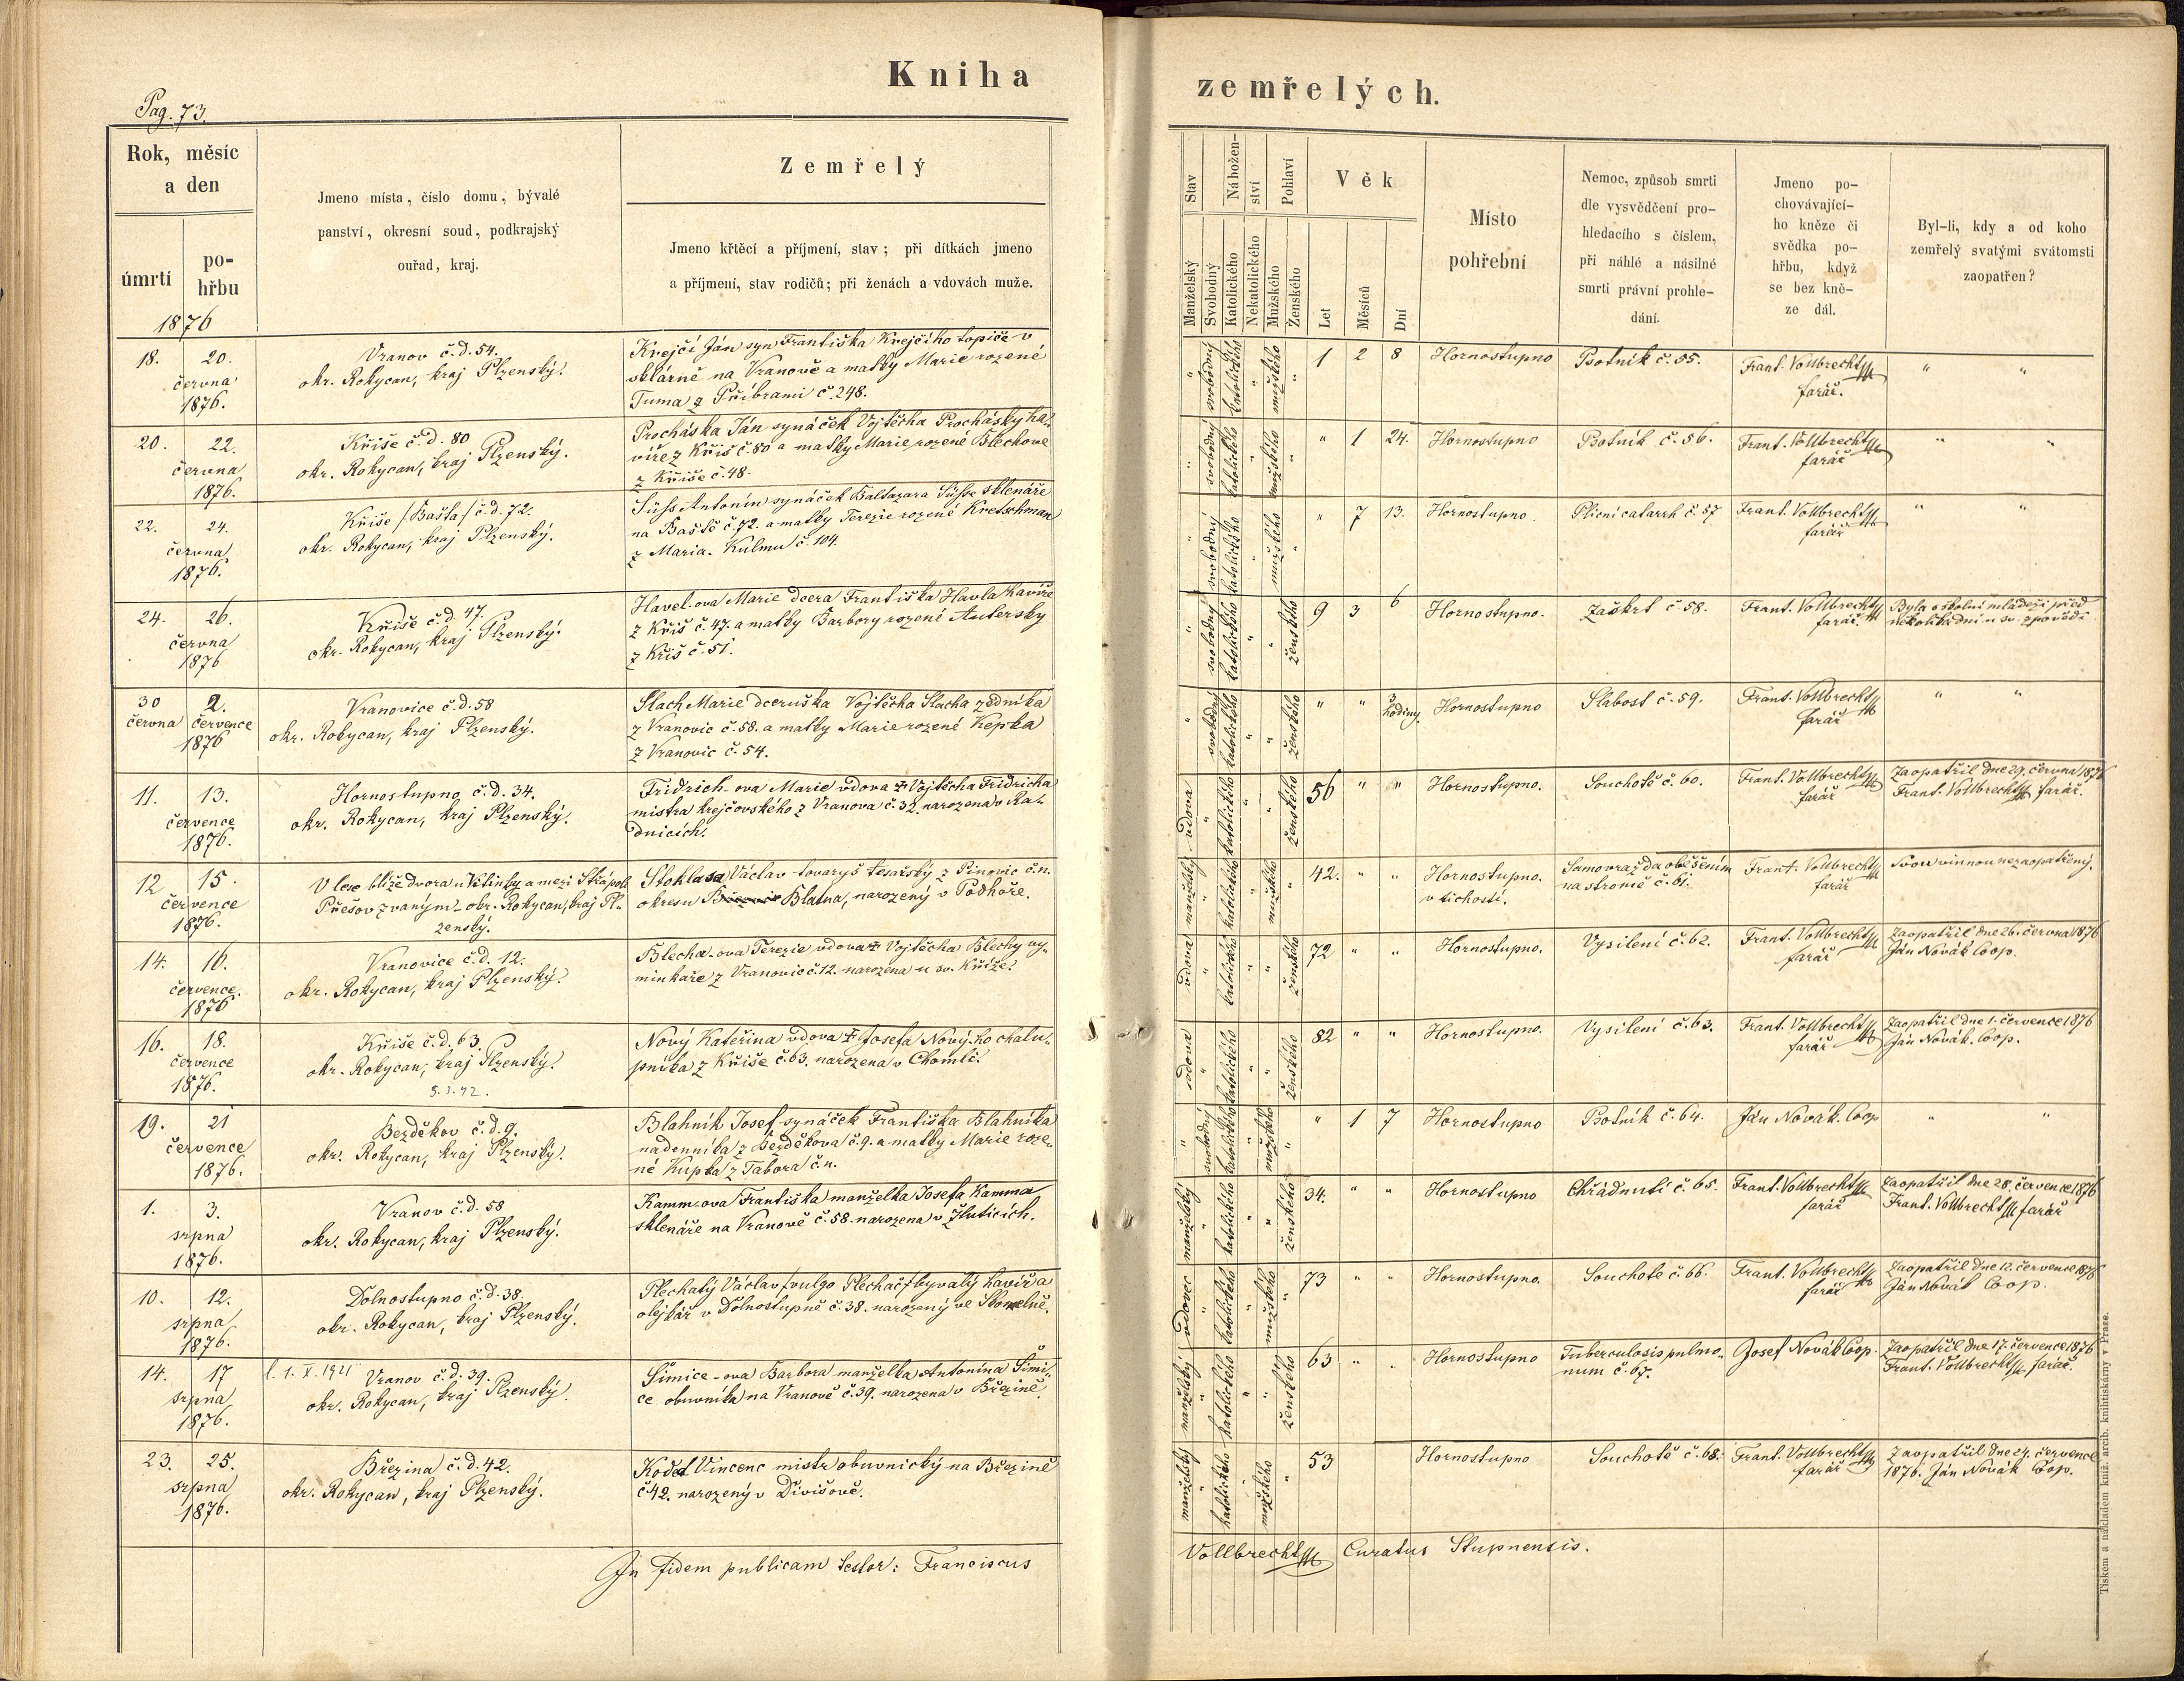 Kniha zemřelých.
Pag. 73.
Rok, měsíc
a den
úmrtí
po-
hřbu
1876
Jmeno místa, číslo domu, bývalé
panství, okresní soud, podkrajský
ouřad, kraj.
Zemřelý
Jmeno křtěcí a příjmení, stav; při dítkách jmeno
a příjmení, stav rodičů; při ženách a vdovách muže.
Stav
Manželský
Svobodný
Nábožen-
ství
Katolického
Nekatolického
Pohlaví
Mužského
Ženského
Věk
Let
Měsíců
Dní
Místo
pohřební
Nemoc, způsob smrti
dle vysvědčení pro-
hledacího s číslem,
při náhlé a násilné
smrti právní prohle-
dání.
Jmeno po-
chovávající-
ho kněze či
svědka po-
hřbu, když
se bez kně-
ze dál.
Byl-li, kdy a od koho
zemřelý svatými svátomsti
zaopatřen?
18. 20.
června
1876.
Vranov č.d. 54.
okr. Rokycan, kraj Plzenský.
Krejčí Ján syn Františka Krejčího topiče v
sklárně na Vranově a matky Marie rozené
Tuma z Příbrami č. 248.
" svobodný katolického " mužského "
1 2 8
Hornostupno
Psotník č. 55.
Frant. Vollbrecht
farář.
" "
20. 22.
června
1876.
Kříše č.d. 80
okr. Rokycan, kraj Plzenský.
Procháska Ján synáček Vojtěcha Prochásky ha-
víře z Kříš č. 80 a matky Marie rozené Blechove
z Kříše č. 48.
" svobodný katolického " mužského "
" 1 24.
Hornostupno
Psotník č. 56.
Frant. Vollbrecht
farář
" "
22. 24.
června
1876.
Kříše /Bašta/ č.d. 72.
okr. Rokycan, kraj Plzenský.
Süss Antonín synáček Baltazara Süsse sklenáře
na Baště č. 72. a matky Terezie rozené Kretschman
z Maria-Kulmu č. 104.
" svobodný katolického " mužského "
" 7 13.
Hornostupno.
Plicní catarrh č. 57
Frant. Vollbrecht
farář
" "
24. 26.
června
1876
Kříše č.d 47.
okr. Rokycan, kraj Plzenský.
Havel-ova Marie dcera Františka Havla havíře
z Kříš č. 47. a matky Barbory rozené Autersky
z Kříš č. 51.
" svobodný katolického " " ženského
9 3 6
Hornostupno.
Záškrt č 58.
Frant. Vollbrecht
farář
Byla s školní mládeží před
několika dni u sv. zpovědi
30 2.
června července
1876
Vranovice č.d. 58
okr. Rokycan, kraj Plzenský.
Slach Marie dceruška Vojtěcha Slacha zedníka
z Vranovic č. 58. a matky Marie rozené Kepka
z Vranovic č. 54.
" svobodný katolického " " ženského
" " 3 hodiny
Hornostupno
Slabost č. 59.
Frant. Vollbrecht
farář
" "
11. 13.
července
1876.
Hornostupno č.d. 34.
okr. Rokycan, kraj Plzenský.
Fridrich-ova Marie vdova ✝ Vojtěcha Fridricha
mistra krejčovského z Vranova č. 32. narozena v Ra-
dnicích.
vdova " katolického " " ženského
56 " "
Hornostupno.
Souchotě č. 60.
Frant. Vollbrecht
farář
Zaopatřil dne 29. června 1876
Frant. Vollbrecht farář.
12 15.
července
1876.
V lese blíže dvora u Vitinky a mezi Střápole
Přešov zvaným - okr. Rokycan, kraj Pl-
zenský.
Stoklasa Václav tovaryš tesařský z Pinovic č.n.
okresu Blatna, narozený v Podhoře.
manželský " katolického " mužského "
42. " "
Hornostupno.
v tichosti.
Samovražda oběšením
na stromě č. 61.
Frant. Vollbrecht
farář
Svou vinnou nezaopatřený.
14. 16.
července.
1876
Vranovice č.d. 12.
okr. Rokycan, kraj Plzenský.
Blecha-ova Terezie vdova ✝ Vojtěcha Blechy vy-
minkaře z Vranovic č. 12. narozena u sv. Kříže.
vdova " katolického " " ženského
72 " "
Hornostupno.
Vysílení č. 62.
Frant. Vollbrecht
farář
Zaopatřil dne 26. června 1876
Ján Novák Coop.
16. 18.
července
1876.
Kříše č.d. 63.
okr. Rokycan, kraj Plzenský.
5.3.42.
Nový Kateřina vdova ✝ Josefa Nový-ho chalu-
pníka z Kříše č. 63. narozena v Chomli.
vdova " katolického " " ženského
82 " "
Hornostupno.
Vysílení č. 63.
Frant. Vollbrecht
farář
Zaopatřil dne 1. července 1876
Ján Novák. Coop.
19. 21
července
1876.
Bezděkov č.d. 9.
okr. Rokycan, kraj Plzenský.
Blahník Josef synáček Františka Blahníka
nadenníka z Bezděkova č. 9. a matky Marie roze-
né Kupka z Tabora č.n.
" svobodný katolického " mužského "
" 1 7
Hornostupno
Psotník č. 64.
Ján Novák. Coop
" "
1. 3.
srpna
1876.
Vranov č.d. 58
okr. Rokycan, kraj Plzenský.
Kamm-ova Františka manželka Josefa Kamma
sklenáře na Vranově č. 58. narozena v Žluticích.
manželský " katolického " " ženského
34. " "
Hornostupno
Chřádnutí č. 65.
Frant. Vollbrecht
farář
Zaopatřil dne 28. července 1876
Frant. Vollbrecht farář
10. 12.
srpna
1876.
Dolnostupno č.d. 38.
okr. Rokycan, kraj Plzenský.
Plechatý Václav /vulgo Plechač/ byvalý havíř a
olejkář v Dolnostupně č. 38. narozený ve Skomelně.
vdovec " katolického " mužského "
73 " "
Hornostupno.
Souchotě č. 66.
Frant. Vollbrecht
farář
Zaopatřil dne 12. července 1876
Ján Novák Coop.
14. 17
srpna
1876.
l. 1. X. 1921 Vranov č.d. 39.
okr. Rokycan, kraj Plzenský.
Šimice-ova Barbora manželka Antonína Šimi-
ce obuvníka na Vranově č. 39. narozena v Březině.
manželský " katolického " " ženského
63 " "
Hornostupno
Tuberculosis pulmo-
num č. 67.
Josef Novák Coop.
Zaopatřil dne 17. července 1876
Frant. Vollbrecht farář.
23. 25.
srpna
1876.
Březina č.d. 42.
okr. Rokycan, kraj Plzenský.
Kodet Vincenc mistr obuvnický na Březině
č. 42. narozený v Divišově.
manželský " katolického " mužského "
53
Hornostupno
Souchotě č. 68.
Frant. Vollbrecht
farář
Zaopatřil dne 24. července
1876. Ján Novák Cop.
In fidem publicam testor: Franciscus Vollbrecht Curatus Stupnensis.
Tiskem a nákladem kníž. arcib. knihtiskárny v Praze.